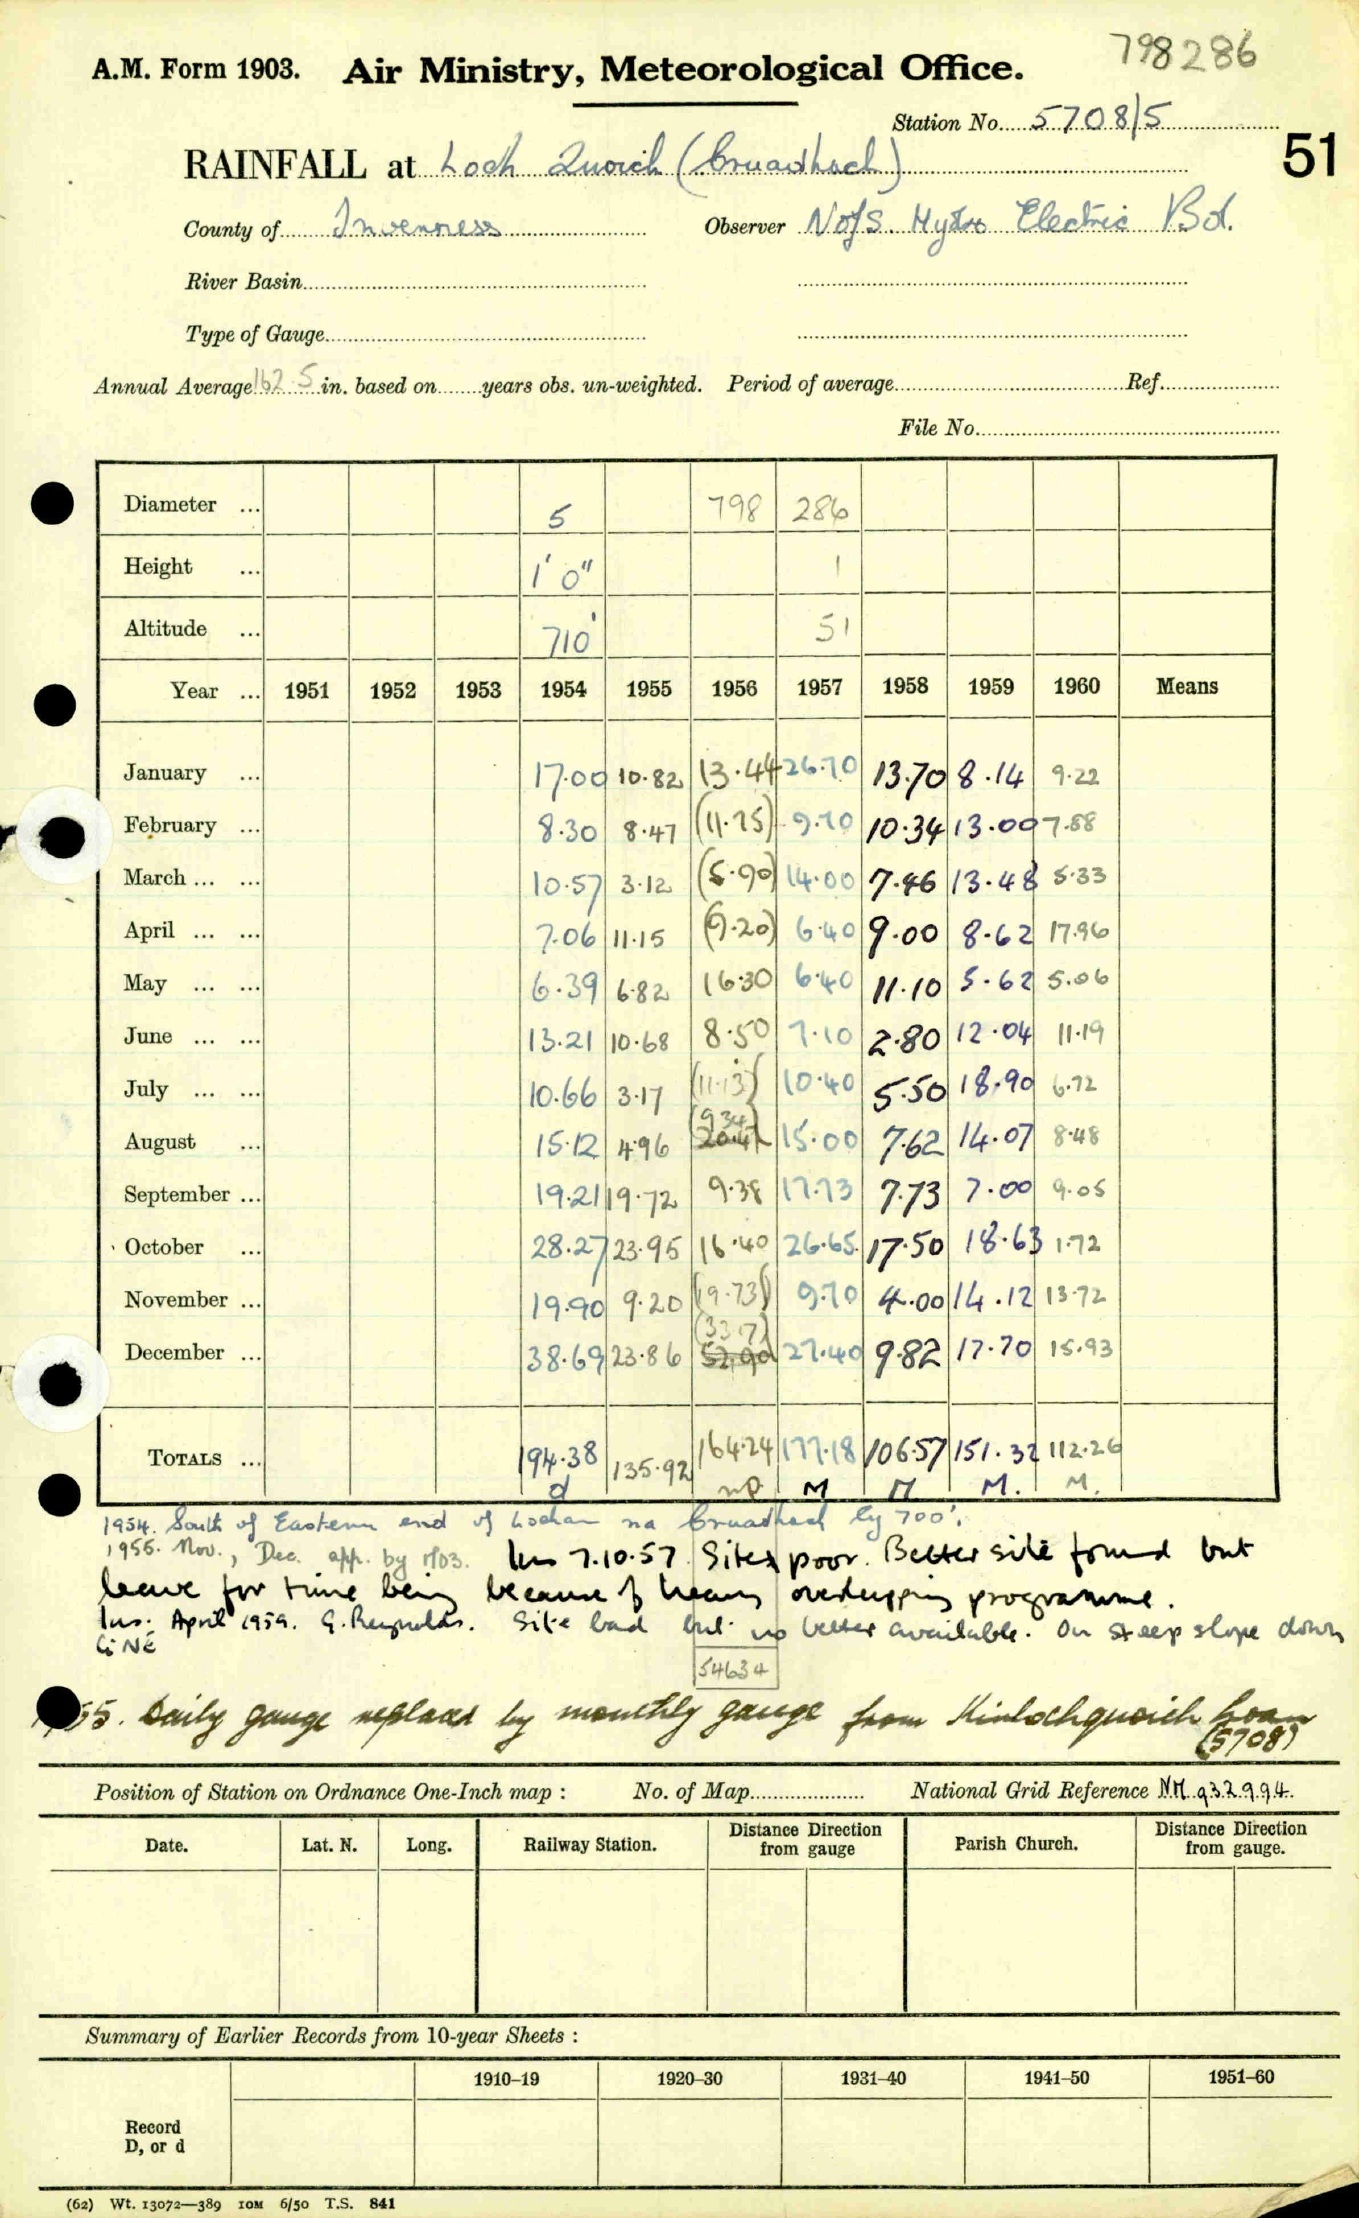 798286
A.M. Form 1903. Air Ministry, Meteorological Office.
Station No. 5708/5
51
RAINFALL at Loch Quoich (Cruadhach)
County of Inverness Observer N of S. Hydro Electric Bd.
River Basin
Type of Gauge
Annual Average 162.5 in. based on years obs. un-weighted. Period of average Ref.
File No.
Diameter ... 5 798 286
Height ... 1' 0" 1
Altitude ... 710' 51
Year ... 1951 1952 1953 1954 1955 1956 1957 1958 1959 1960 Means
January ... 17.00 10.82 13.44 26.70 13.70 8.14 9.22
February ... 8.30 8.47 (11.75) 9.70 10.34 13.00 7.88
March ... ... 10.57 3.12 (5.90) 14.00 7.46 13.48 5.33
April ... ... 7.06 11.15 (9.20) 6.40 9.00 8.62 17.96
May ... ... 6.39 6.82 16.30 6.40 11.10 5.62 5.06
June ... ... 13.21 10.68 8.50 7.10 2.80 12.04 11.19
July ... ... 10.66 3.17 (11.13) 10.40 5.50 18.90 6.72
(9.34)
August ... 15.12 4.96 20.47 15.00 7.62 14.07 8.48
September ... 19.21 19.72 9.38 17.73 7.73 7.00 9.05
October ... 28.27 23.95 16.40 26.65 17.50 18.63 1.72
November ... 19.90 9.20 (19.73) 9.70 4.00 14.12 13.72
(33.17)
December ... 38.69 23.86 52.90 27.40 9.82 17.70 15.93
TOTALS ... 194.38 135.92 164.24 177.18 106.57 151.32 112.26
d M M M. M.
1954. South of Eastern end of Lochan na Cruadhach by 700'.
1955. Nov., Dec. app. by M03. Ins 7.10.57. Site poor. Better site found but
leave for time being because of heavy overlapping programme.
Ins: April 1959. G. Reynolds. Site bad but no better available. On steep slope down
to NE
54634
1955. Daily gauge replaced by monthly gauge from Kinlochquoich
(5708)
Position of Station on Ordnance One-Inch map : No. of Map National Grid Reference NM 932994.
Date. Lat. N. Long. Railway Station. Distance Direction from gauge Parish Church. Distance Direction from gauge.
Summary of Earlier Records from 10-year Sheets :
1910–19 1920–30 1931–40 1941–50 1951–60
Record
D, or d
(62) Wt. 13072—389 10M 6/50 T.S. 841